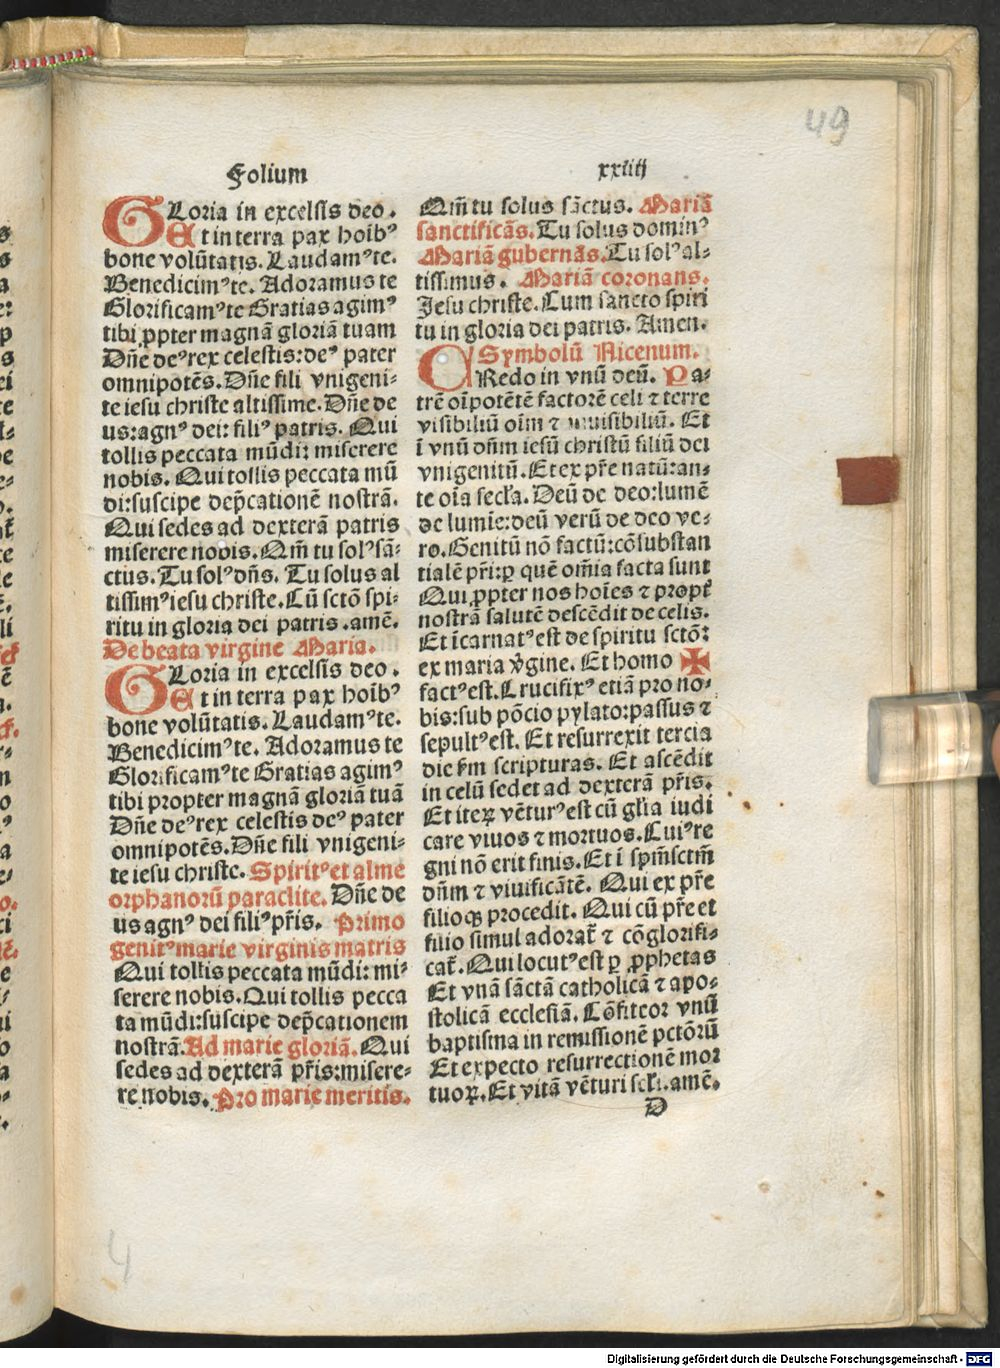 49
Folium
xxiiij
GLoria in excelsis deo.
Et in terra pax hoib⁹
bone volūtatis. Laudam⁹te.
Benedicim⁹te. Adoramus te
Glorificam⁹te Gratias agim⁹
tibi ꝓpter magnā gloriā tuam
Dn̄e de⁹rex celestis:de⁹ pater
omnipotēs. Dn̄e fili vnigeni⸗
te iesu christe altissime. Dn̄e de
us:agn⁹ dei: fili⁹ patris. Qui
tollis peccata mūdi: miserere
nobis. Qui tollis peccata mū
di:suscipe dep̄cationē nostrā.
Qui sedes ad dexterā patris
miserere nobis. Qm̄ tu sol⁹ sā⸗
ctus. Tu sol⁹ dn̄s. Tu solus al
tissim⁹iesu christe. Cū sctō spi⸗
ritu in gloria dei patris .amē.
De beata virgine Maria.
GLoria in excelsis deo.
Et in terra pax hoīb⁹
bone volūtatis. Laudam⁹te.
Benedicim⁹te. Adoramus te
Glorificam⁹te Gratias agim⁹
tibi propter magnā gloriā tuā
Dn̄e de⁹rex celestis de⁹ pater
omnipotēs. Dn̄e fili vnigeni⸗
te iesu christe. Spirit⁹et alme
orphanorū paraclite. Dn̄e de
us agn⁹ dei fili⁹pr̄is. Primo
genit⁹marie virginis matris
Qui tollis peccata mūdi: mi⸗
serere nobis. Qui tollis pecca
ta mūdi:suscipe dep̄cationem
nostrā. Ad marie gloriā. Qui
sedes ad dexterā pr̄is:misere⸗
re nobis. Pro marie meritis.
Qm̄ tu solus sāctus. Mariā
sanctificās. Tu solus domin⁹
Mariā gubernās. Tu sol⁹al⸗
tissimus. Mariā coronans.
Jesu christe. Cum sancto spiri
tu in gloria dei patris. Amen.
Symbolū Nicenum.
CRedo in vnū deū. Pa⸗
trē oīpotētē factorē celi ⁊ terre
visibiliū oīm ⁊ inuisibiliū. Et
ī vnū dn̄m iesū christū filiū dei
vnigenitū. Et ex pr̄e natū:an⸗
te oīa secl̄a. Deū de deo:lumē
de lumīe:deū verū de deo ve⸗
ro. Genitū nō factū:cōsubstan
tialē pr̄i:ꝑ quē om̄ia facta sunt
Qui ꝓpter nos hoīes ⁊ propt̄
nostrā salutē descēdit de celis.
Et īcarnat⁹est de spiritu sctō:
ex maria v̄gine. Et homo ✠
fact⁹est. Crucifix⁹ etiā pro no⸗
bis:sub pōcio pylato:passus ⁊
sepult⁹est. Et resurrexit tercia
die s̄m scripturas. Et ascēdit
in celū sedet ad dexterā pr̄is.
Et iteꝝ vētur⁹est cū gl̄ia iudi
care viuos ⁊ mortuos. Cui⁹re
gni nō erit finis. Et ī spm̄sctm̄
dn̄m ⁊ viuificātē. Qui ex pr̄e
filioqꝫ procedit. Qui cū pr̄e et
filio simul adorat̄ ⁊ cōglorifi⸗
cat̄. Qui locut⁹est ꝑ ꝓphetas
Et vnā sāctā catholicā ⁊ apo⸗
stolicā ecclesiā. Cōfiteor vnū
baptisma in remissionē pctōrū
Et expecto resurrectionē mor
tuoꝝ. Et vitā vēturi secl̄i. amē.
D
4
Digitalisierung gefördert durch die Deutsche Forschungsgemeinschaft - DFG